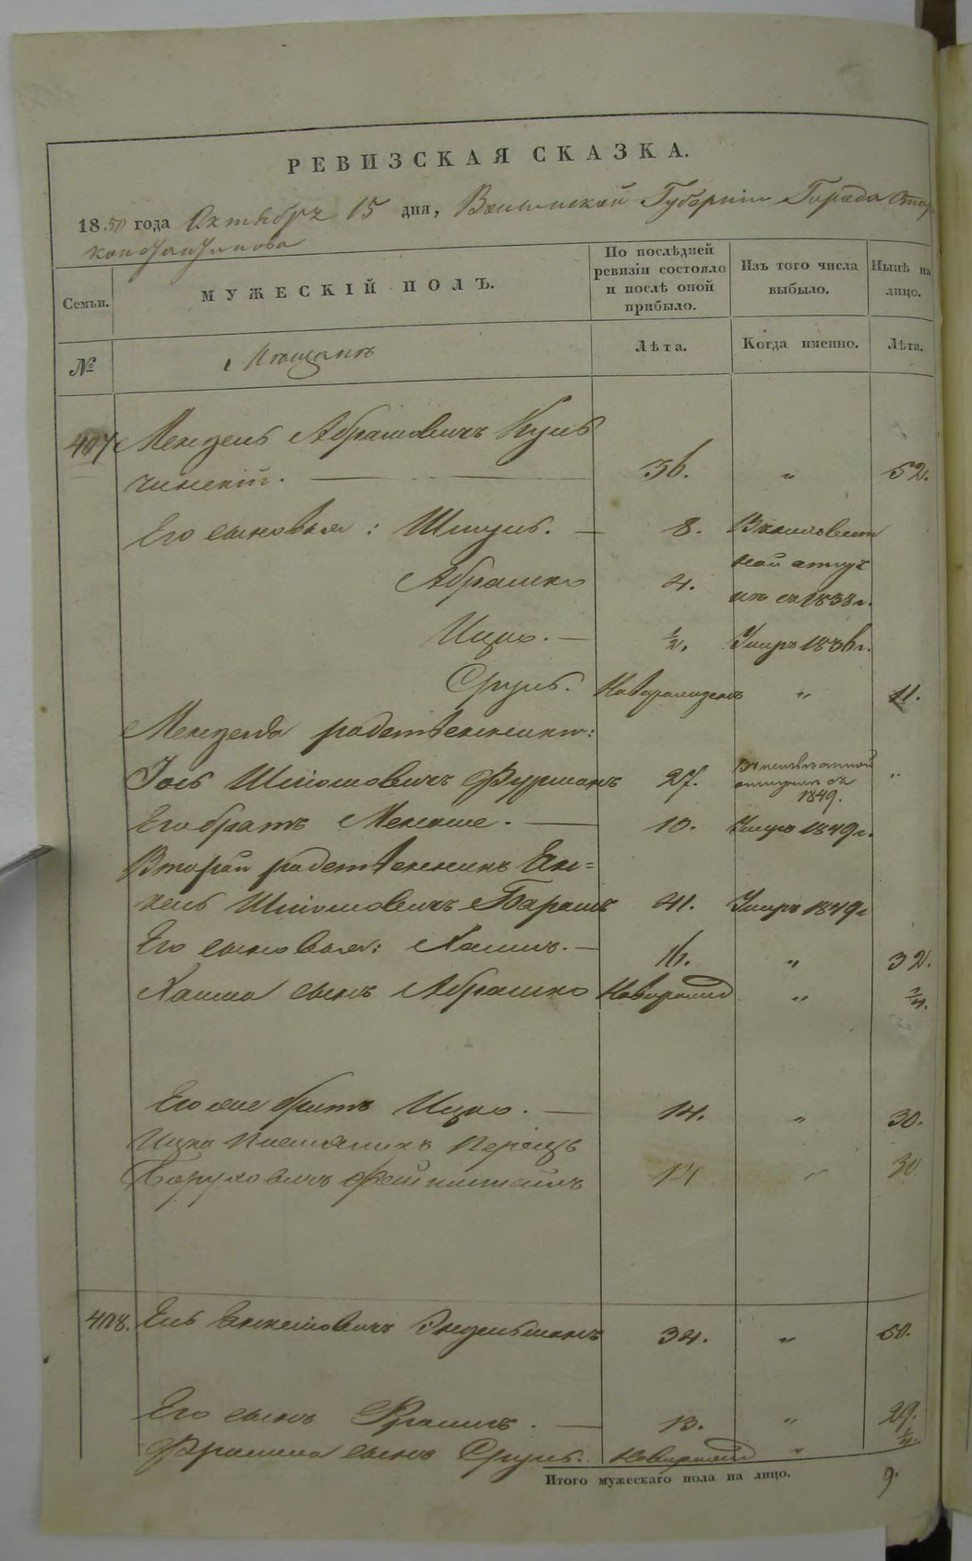 РЕВИЗСКАЯ СКАЗКА.
1850 года Октября 15 дня, Волынской Губернии Города Старо
константинова
Семьи.
МУЖЕСКІЙ ПОЛЪ.
По послѣдней
ревизіи состояло
и послѣ оной
прибыло.
Изъ того числа
выбыло.
Нынѣ на
лицо.
№
Мещанъ
Лѣта.
Когда именно.
Лѣта.
407 Мендель Абрамовичъ Куль
чинскій. 36. „ 52.
Его сыновья: Шмуль. 8.
Абрамко 4.
съ 1838 г.
Ицко. ½. Умеръ 1836 г.
Сруль. Новорожденъ „ 11.
Менделя родственники:
Іось Шліомовичъ Фурманъ 27. „
1849.
Его братъ Менаше. 10. Умеръ 1849 г.
Второй родственникъ Ен=
кель Шліомовичъ Барашъ 41. Умеръ 1849 г
Его сыновья: Хаимъ. 16. „ 32.
Хаима сынъ Абрамко Новорожд „
Его же братъ Ицко. 14. „ 30.
Ицка племяникъ Перецъ
Боруховичъ 14 „ 30
408. Ель Энзельманъ 34. „ 50.
Его сынъ Фроимъ. 13. „ 29.
Фроима сынъ Сруль. Новорожд „
Итого мужескаго пола на лицо. 9.